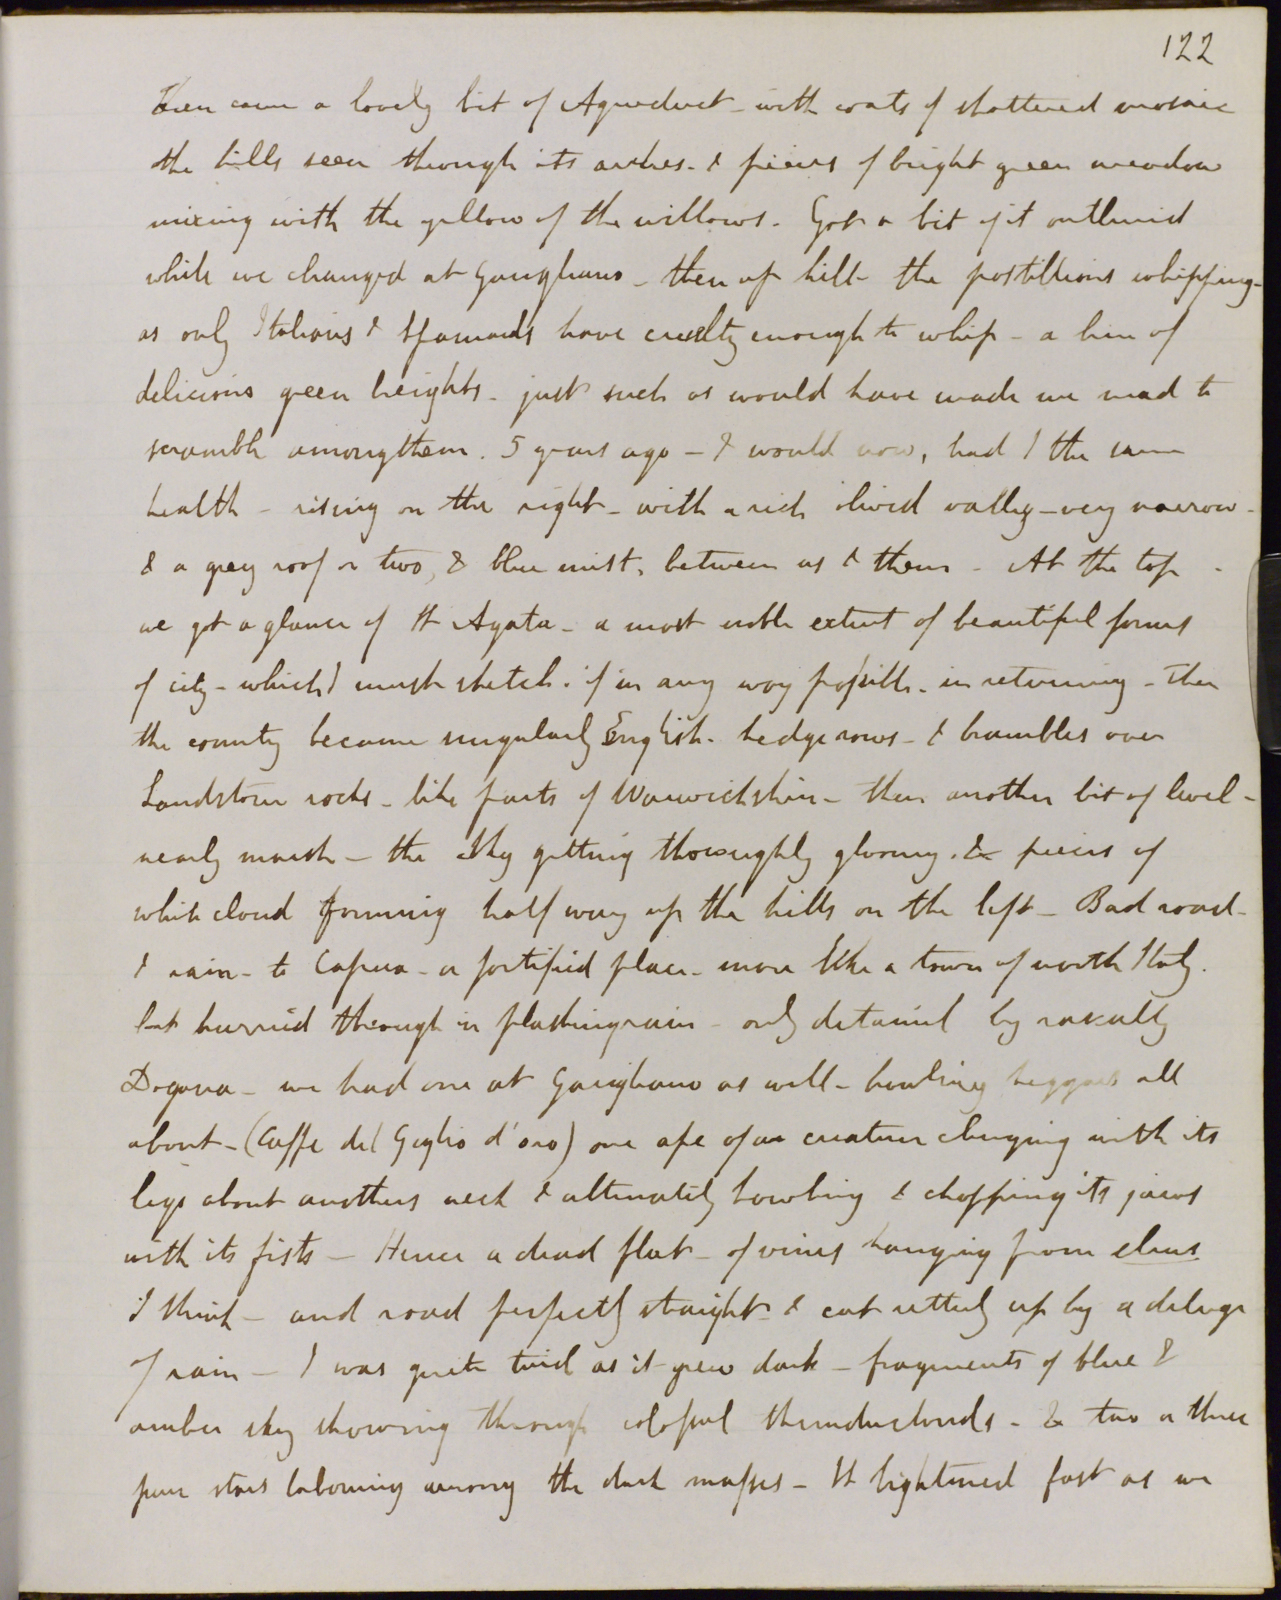 122
Then came a lovely bit of Aqueduct - with coats of shattered mosaic
the hills seen through its arches - & pieces of bright green meadow
mixing with the yellow of the willows. Got a bit of it outlined
while we changed at Garigliano - then up hill - the postillions whipping -
as only Italians & Spaniards have cruelty enough to whip - a line of
delicious green heights - just such as would have made me mad to
scramble among them. 5 years ago - & would now, had I the same
health - rising on the right - with a rich olived valley - very narrow -
& a grey roof or two, & blue mist, between us & them - At the top -
we got a glance of St Agata - a most noble extent of beautiful forms
of city - which I must sketch. if in any way possible - in returning - Then
the country became singularly English. hedgerows - & brambles over
Sandstone rocks - like parts of Warwickshire - then another bit of level -
nearly marsh - the sky getting thoroughly gloomy. & pieces of
white cloud forming half way up the hills on the left - Bad road -
& rain - to Capua - a fortified place - more like a town of north Italy.
but hurried through in plashing rain - only detained by rascally
Dogana - we had one at Garigliano as well - howling beggars all
about - (Caffe del Giglio d'oro) one ape of a creature clinging with its
legs about anothers neck & alternately howling & chopping its jaws
with its fists - Hence a dead flat - of vines hanging from elms
I think - and road perfectly straight & cut utterly up by a deluge
of rain - I was quite tired as it grew dark - fragments of blue &
amber sky showing through colossal thunderclouds - & two or three
pure stars labouring among the dark masses - It lightened fast as we